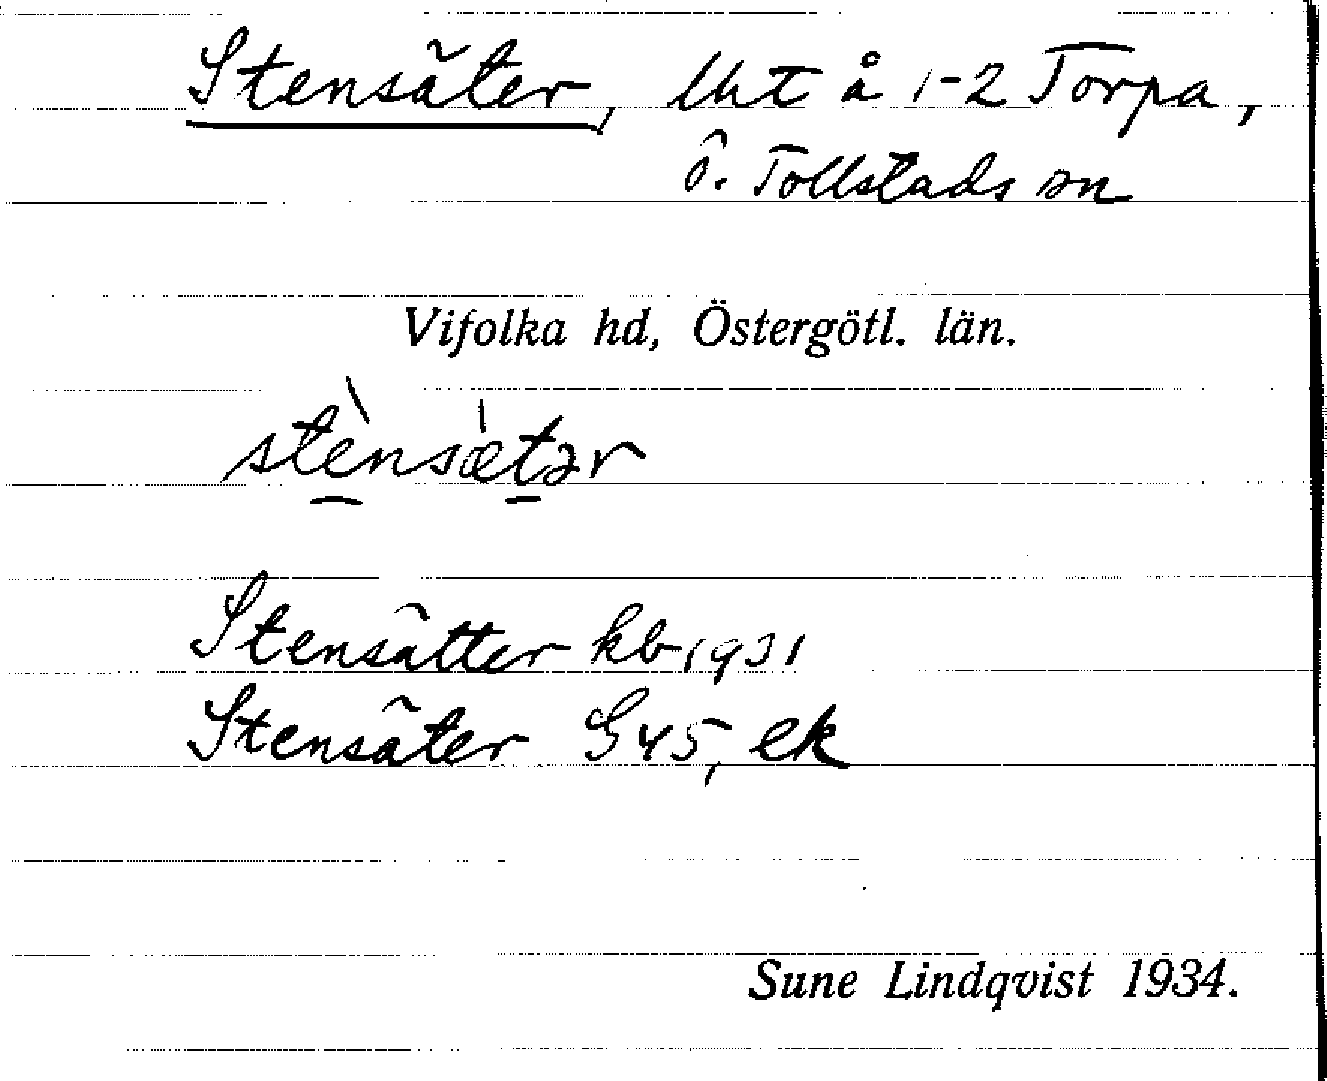 Stensäter, lht å 1-2 Torpa,
Ö. Tollstads sn
Vifolka hd, Östergötl. län.
stènsætər
Stensätter kb 1931
Stensäter G45, ek
Sune Lindqvist 1934.